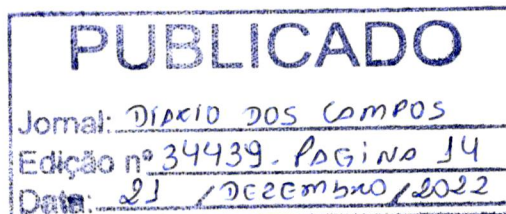 PUBLICADO
Jornal: DIARIO DOS CAMPOS
Edição nº 34439. PAGINA 14
Data: 21 / DEZEMBRO / 2022